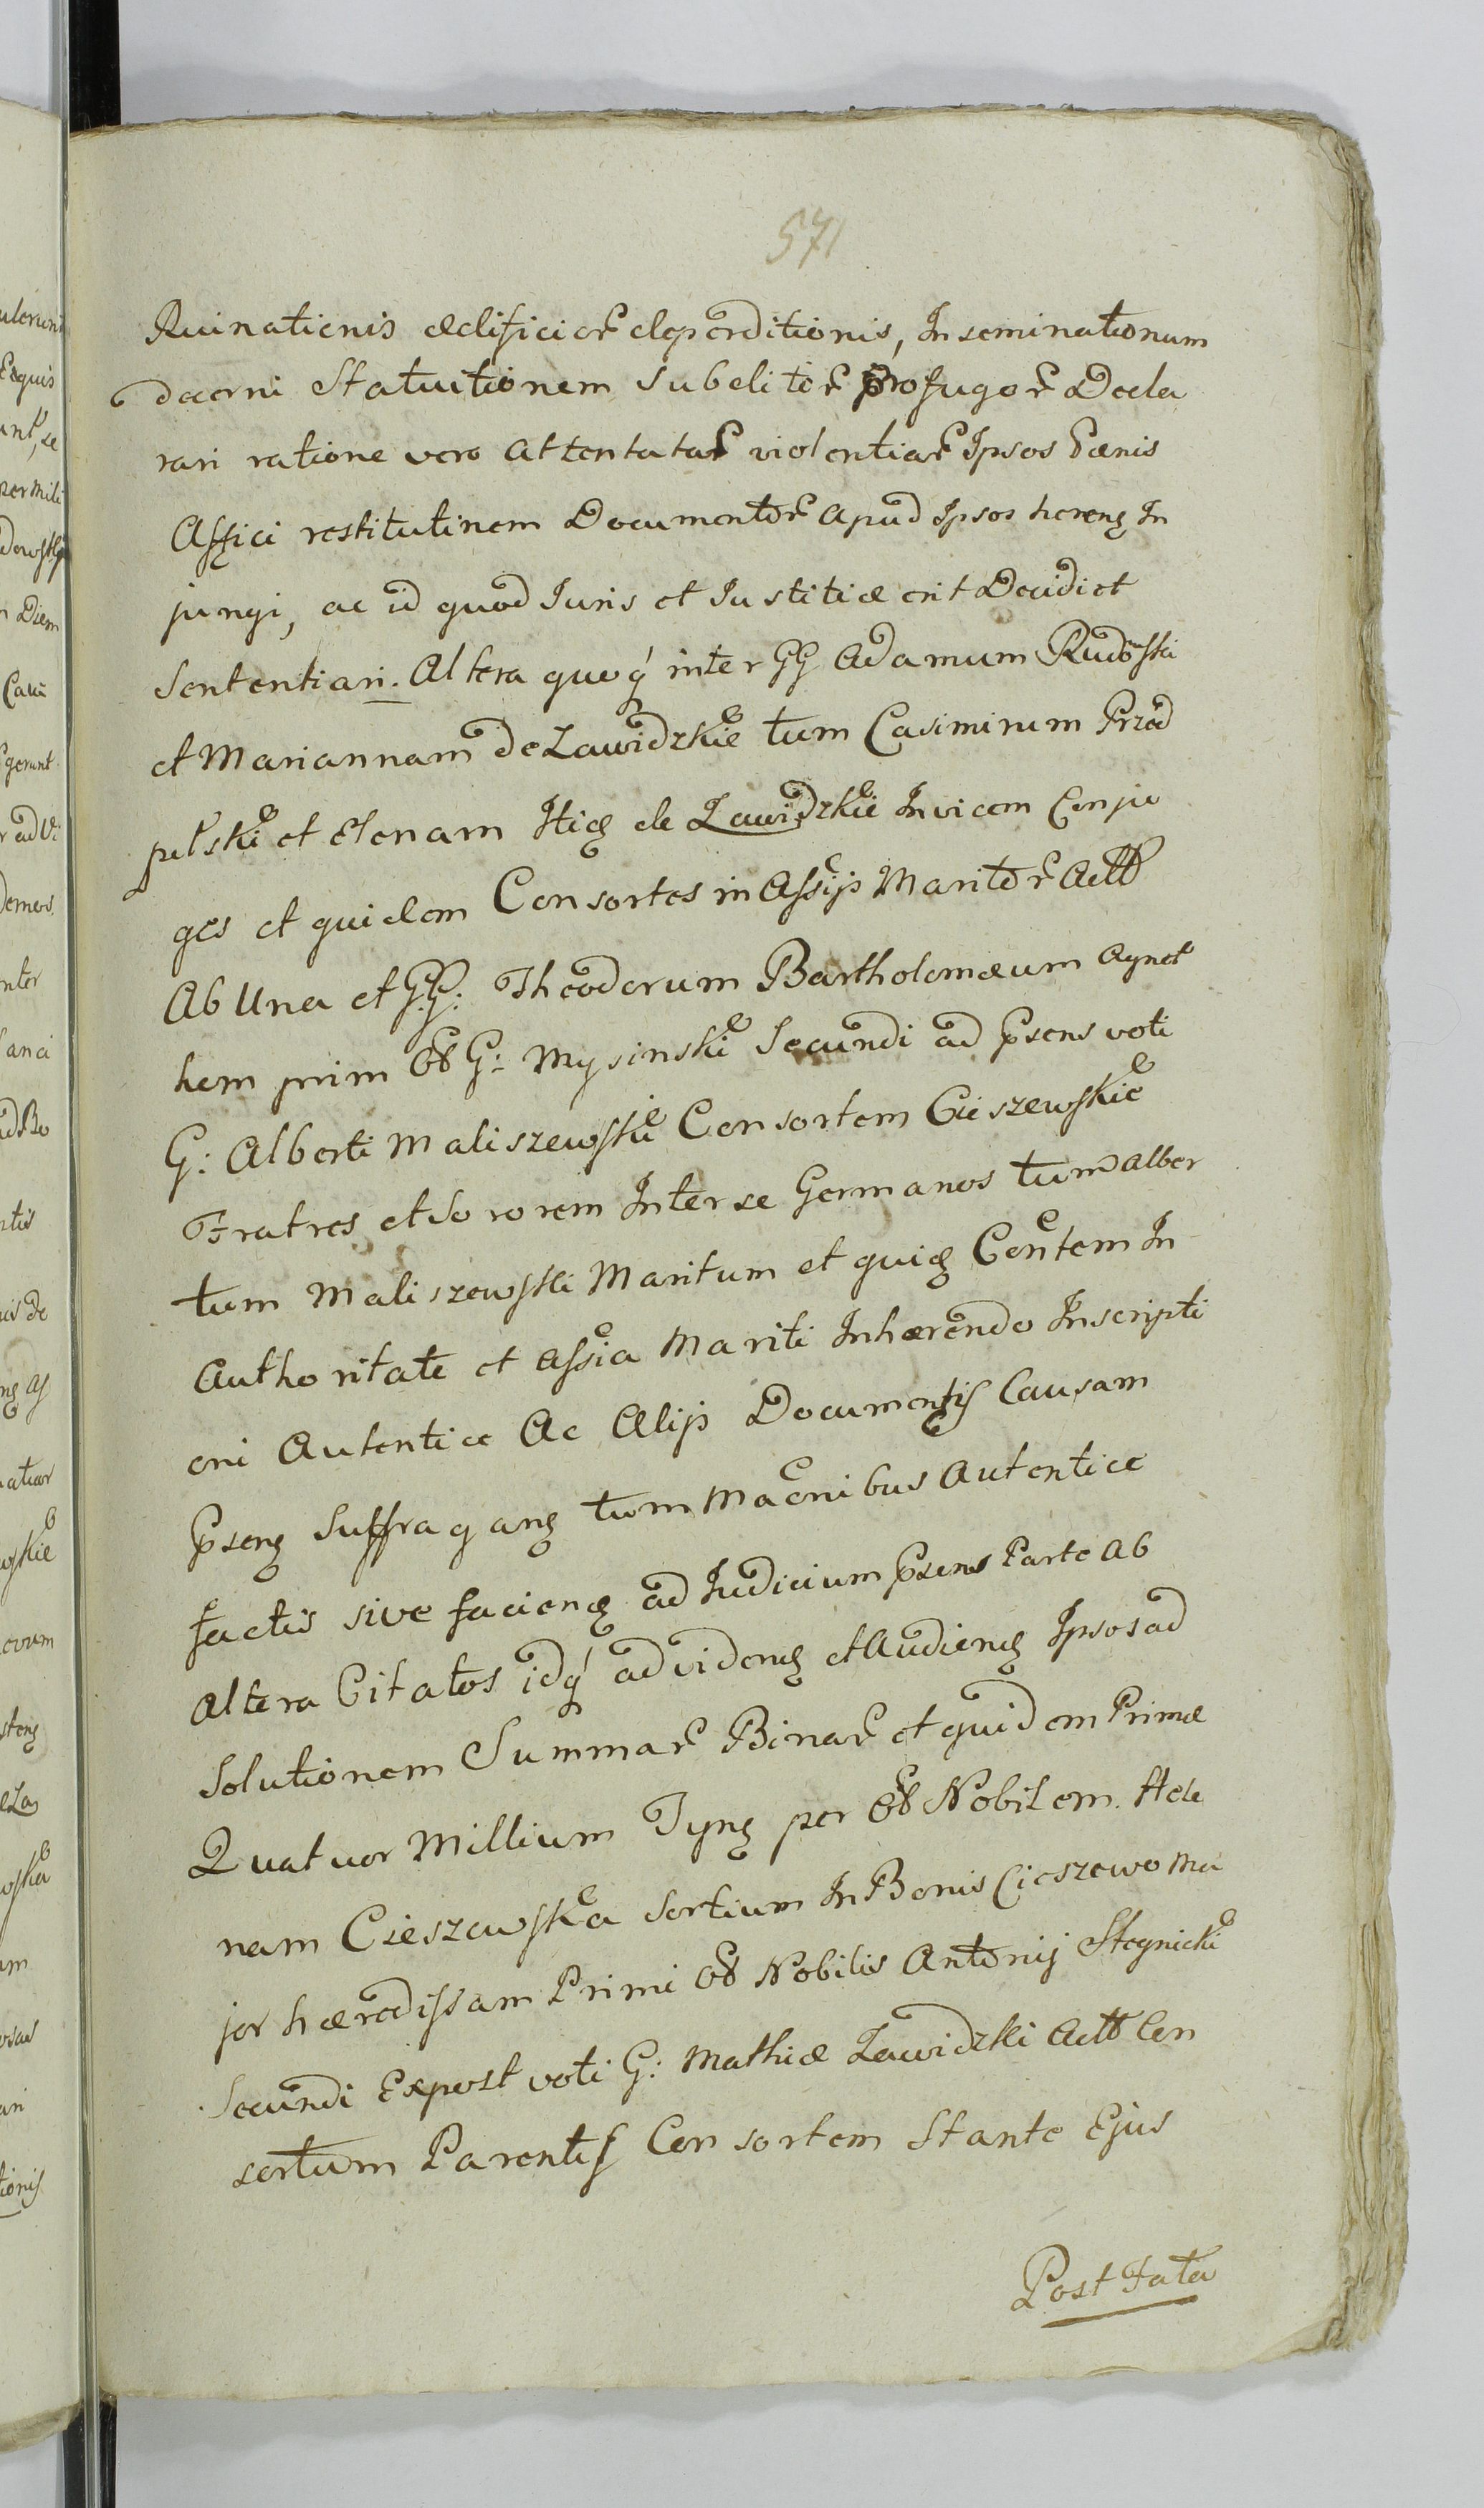 571
Ruinationis ædificior deperditionis, Inseminationum
dacrni Statuitionem Subditor profugor Decla
rari ratione vero Attentatar violentiar Ipsos Pænis
Affici restitutinem Documentor apud Ipsos herenz In
jungi, ac id quod Iuris et Iustitiæ erit Decidi et
Sententiari. Altera quoq inter GG Adamum Rudoski
et Mariannam de Zawidzkie tum Casimirum Przed
pełski et Elenam Itiq de Zawidzkie Invicem Conju
ges et quidem Consortes in Assijs Maritor Actt
Ab Una et G.G: Theodorum Bartholomæum Agnet
hem prim Ol G: Mysinski Secundi ad Psens voti
G: Alberti Maliszewski Consortem Cieszewskie
Fratres et Sororem Inter se Germanos tum Alber
tum Maliszewski Maritum et quiq Contem In
Authoritate et Assia Mariti Inhærendo Inscripti
oni Autenticæ Ac Alijs Documentis Causam
Psenz Suffraganz tum Maonibus Autentice
factis sive facienq ad Iudicium Psens Parte Ab
Altera Citatos idq ad videnq et Audienq Ipsos ad
Solutionem Summar Binar et quidem Primæ
Quatuor Millium Tynz per Ol Nobilem Hele
nam Cieszewska Sortium In Bonis Cieszewo Ma
jor hæredissam Primi Ol Nobilis Antonij Stegnicki
Secundi Expost voti G: Mathiæ Zawidzki Actt Con
sortum Parentis Consortem Stante Ejus
Post Fata